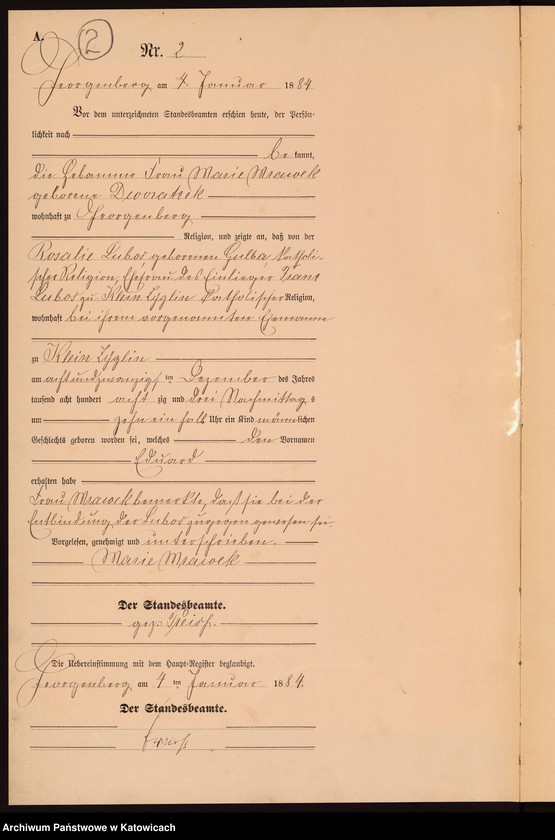 A. 2
Nr. 2
Georgenberg am 4. Januar 1884
Vor dem unterzeichneten Standesbeamten erschien heute, der Persön-
lichkeit nach
be kannt,
die Hebamme Frau Marie Wrawek
geborene Dworatzek
wohnhaft zu Georgenberg
Religion, und zeigte an, daß von der
Rosalie Lubos geborenen Gulba, Katholi-
scher Religion, Ehefrau des Einlieger Franz
Lubos zu Klein Zyglin Katholischer Religion,
wohnhaft bei ihrem vorgenannten Ehemanne
zu Klein Zyglin
am achtundzwanzig ten Dezember des Jahres
tausend acht hundert acht zig und drei Nachmittag s
um zehn ein halb Uhr ein Kind männ lichen
Geschlechts geboren worden sei, welches den Vornamen
Eduard
erhalten habe
Frau Wrawek bemerkte, daß sie bei der
Entbindung der Lubos zugegen gewesen sei.
Vorgelesen, genehmigt und unterschrieben.
Marie Wrawek
Der Standesbeamte.
gez.
Die Uebereinstimmung mit dem Haupt-Register beglaubigt.
Georgenberg am 4 ten Januar 1884.
Der Standesbeamte.
Archiwum Państwowe w Katowicach